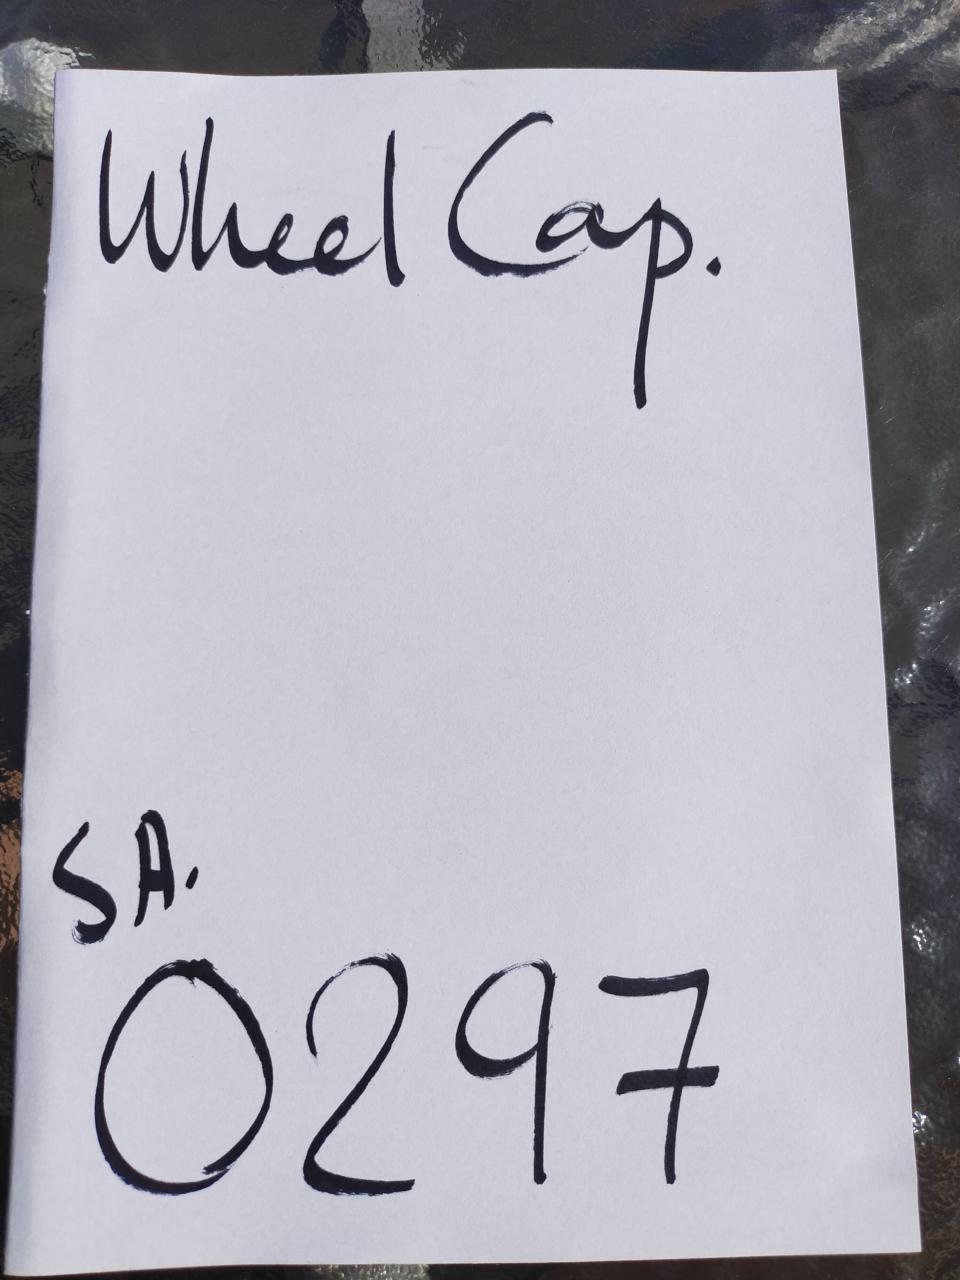 Wheel Cap.
SA.
0297